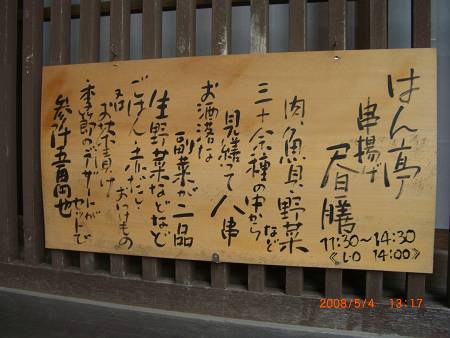 はん亭
串揚げ
昼膳
11:30〜14:30
《L・O 14:00》
肉・魚貝・野菜など
三十余種の中から
見繕って八串
お洒落な
副菜が二品
生野菜などなど
ごはん・赤だし・おつけもの
又はお茶漬け
季節のデザートが
セットで
参阡五百円也
2008/5/4 13:17